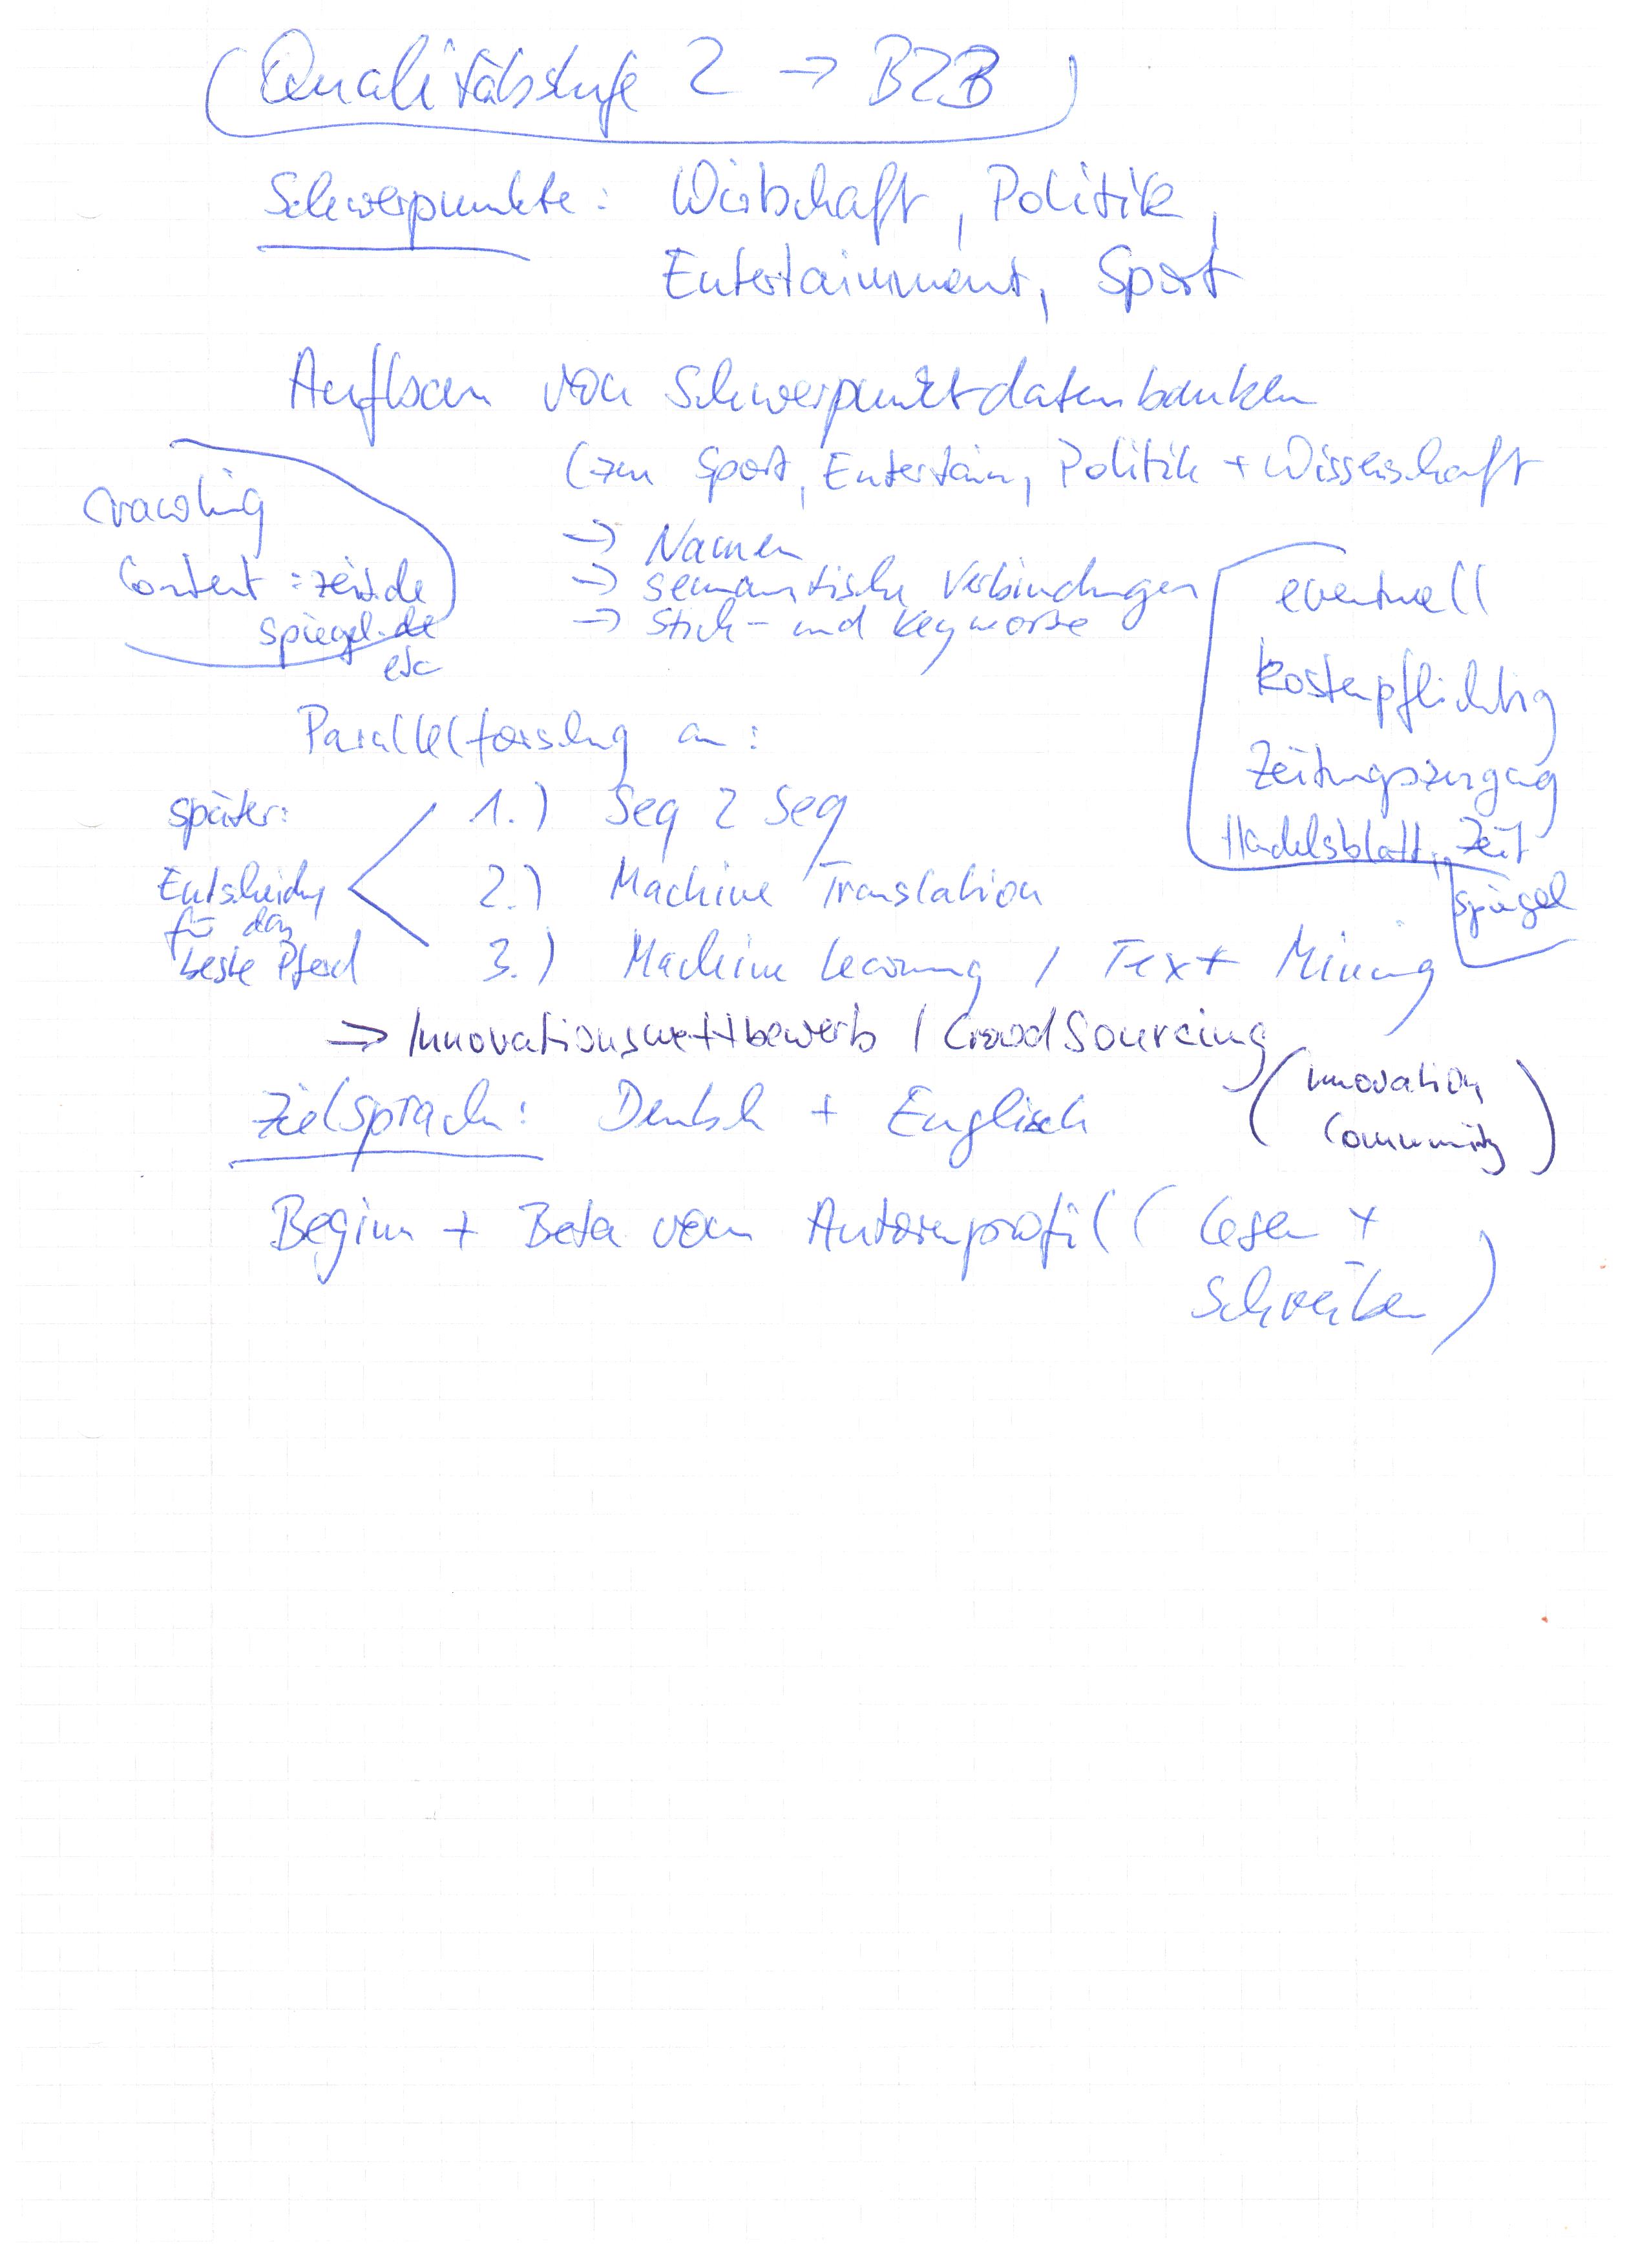 Qualitätsstufe 2 → B2B
Schwerpunkte: Wirtschaft, Politik,
Entertainment, Sport
Aufbau von Schwerpunktdatenbanken
(zum Sport, Entertain, Politik + Wissenschaft
crawling
Content: zeit.de
spiegel.de
etc
→ Namen
→ semantische Verbindungen
→ Stich- und Keyworte
eventuell
kostenpflichtig
Zeitungszugang
Handelsblatt, Zeit
Spiegel
Parallelforschung an:
später:
Entscheidung
für das
beste Pferd
1.) Seq 2 Seq
2.) Machine Translation
3.) Machine Learning / Text Mining
⇒ Innovationswettbewerb / CrowdSourcing
(Innovation
Community)
Zielsprachen: Deutsch + Englisch
Beginn + Beta vom Autorenprofil (Lesen +
Schreiben)